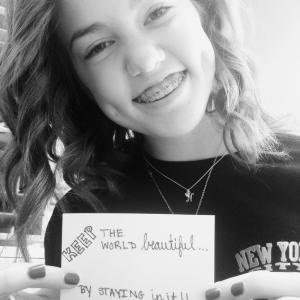 KEEP THE
WORLD beautiful...
BY STAYING in it!!
NEW YORK